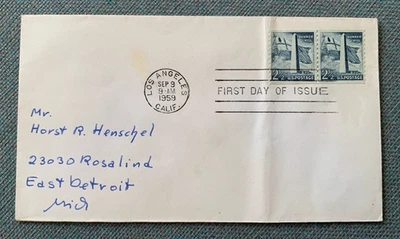 LOS ANGELES
SEP 9
9-AM
1959
CALIF.
FIRST DAY OF ISSUE
2½¢ U.S. POSTAGE
2½¢ U.S. POSTAGE
Mr.
Horst R. Henschel
23030 Rosalind
East Detroit
Mich